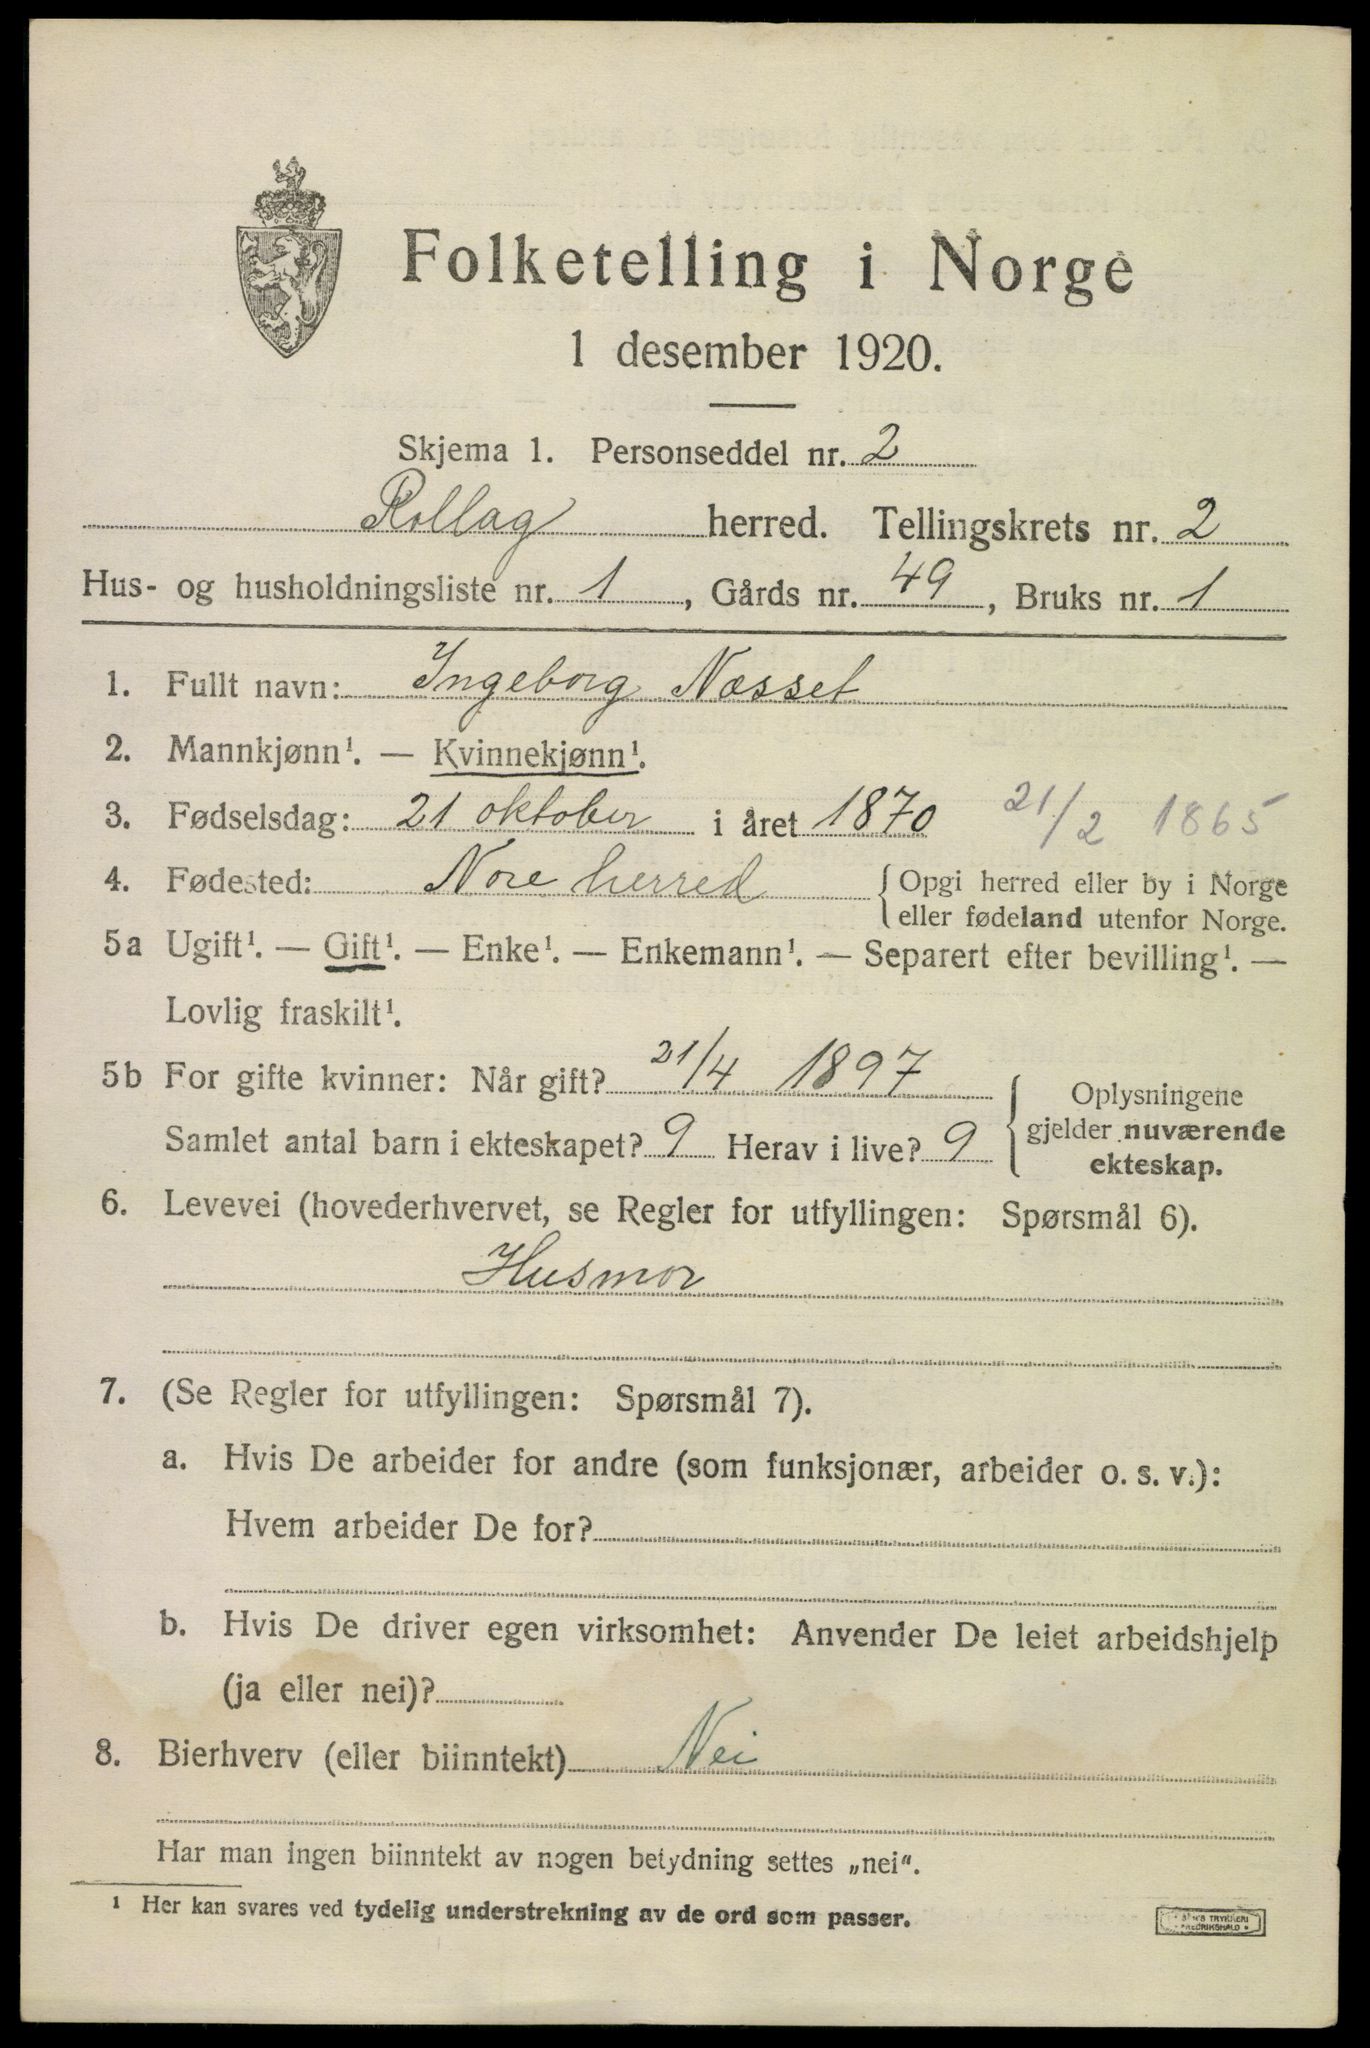 Folketelling i Norge
1 desember 1920.
Skjema 1. Personseddel nr. 2
Rollag herred. Tellingskrets nr. 2
Hus- og husholdningsliste nr. 1, Gårds nr. 49, Bruks nr. 1
1. Fullt navn: Ingeborg Næsset
2. Mannkjønn¹. — Kvinnekjønn¹.
3. Fødselsdag: 21 oktober i året 1870 21/2 1865
4. Fødested: Nore herred { Opgi herred eller by i Norge
eller fødeland utenfor Norge.
5a Ugift¹. — Gift¹. — Enke¹. — Enkemann¹. — Separert efter bevilling¹. —
Lovlig fraskilt¹.
5b For gifte kvinner: Når gift? 21/4 1897
Samlet antal barn i ekteskapet? 9 Herav i live? 9
{ Oplysningene
gjelder nuværende
ekteskap.
6. Levevei (hovederhvervet, se Regler for utfyllingen: Spørsmål 6).
Husmor
7. (Se Regler for utfyllingen: Spørsmål 7).
a. Hvis De arbeider for andre (som funksjonær, arbeider o. s. v.):
Hvem arbeider De for?
b. Hvis De driver egen virksomhet: Anvender De leiet arbeidshjelp
(ja eller nei)?
8. Bierhverv (eller biinntekt) Nei
Har man ingen biinntekt av nogen betydning settes „nei“.
¹ Her kan svares ved tydelig understrekning av de ord som passer.
TRYKKERI